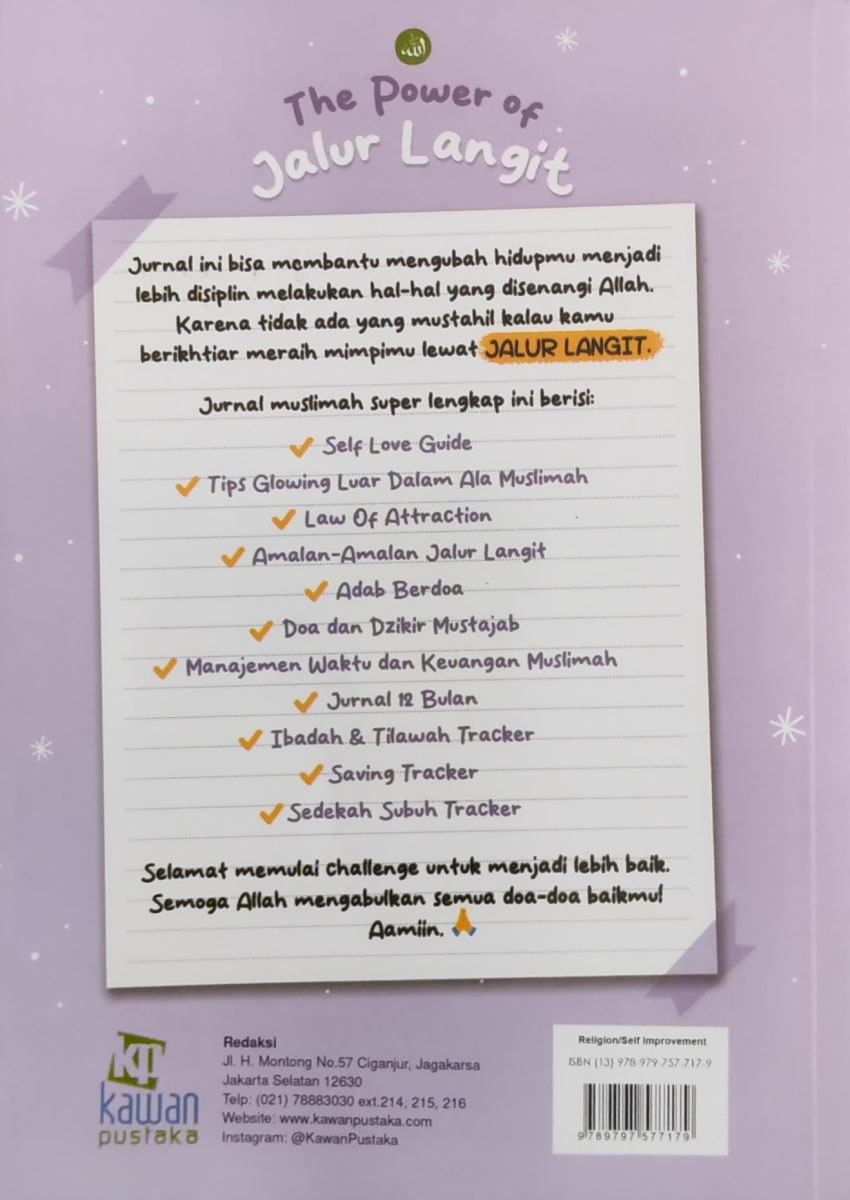 الله
The Power of
Jalur Langit
Jurnal ini bisa membantu mengubah hidupmu menjadi
lebih disiplin melakukan hal-hal yang disenangi Allah.
Karena tidak ada yang mustahil kalau kamu
berikhtiar meraih mimpimu lewat JALUR LANGIT.
Jurnal muslimah super lengkap ini berisi:
Self Love Guide
Tips Glowing Luar Dalam Ala Muslimah
Law Of Attraction
Amalan-Amalan Jalur Langit
Adab Berdoa
Doa dan Dzikir Mustajab
Manajemen Waktu dan Keuangan Muslimah
Jurnal 12 Bulan
Ibadah & Tilawah Tracker
Saving Tracker
Sedekah Subuh Tracker
Selamat memulai challenge untuk menjadi lebih baik.
Semoga Allah mengabulkan semua doa-doa baikmu!
Aamiin. 🙏
KP
kawan
pustaka
Redaksi
Jl. H. Montong No.57 Ciganjur, Jagakarsa
Jakarta Selatan 12630
Telp: (021) 78883030 ext.214, 215, 216
Website: www.kawanpustaka.com
Instagram: @KawanPustaka
Religion/Self Improvement
ISBN (13) 978-979-757-717-9
9 789797 577179